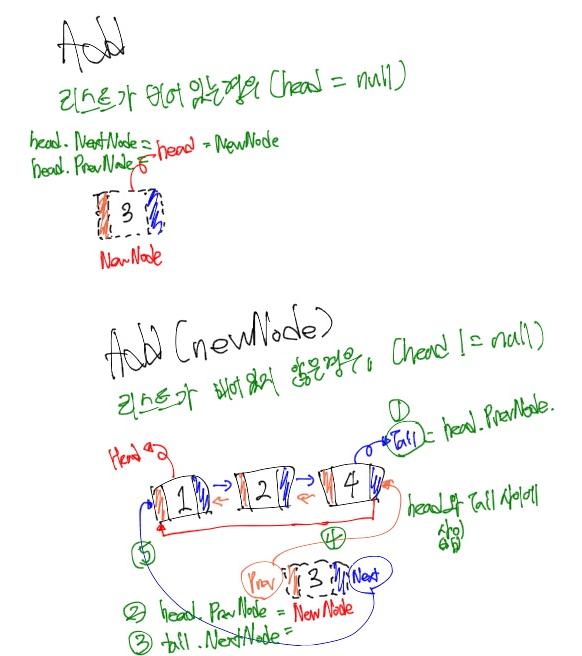 Add
리스트가 비어 있는경우 (head = null)
head.NextNode =
head.PrevNode =
head = NewNode
3
NewNode
Add (newNode)
리스트가 비어 있지 않은경우, (head != null)
①
Tail = head.PrevNode.
Head
1
2
4
head와 Tail 사이에
삽입
④
⑤
Prev
3
Next
② head.PrevNode = NewNode
③ tail.NextNode =